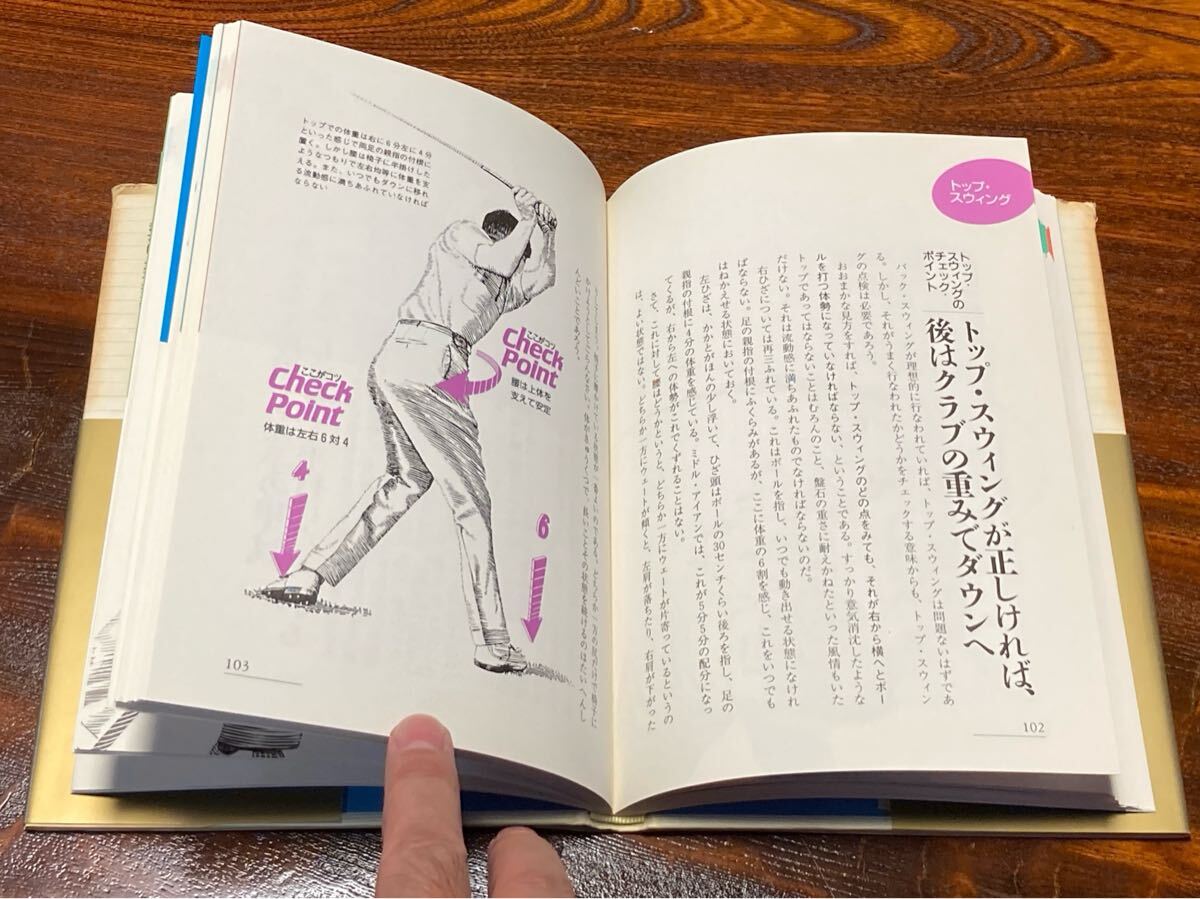 トップ・
スウィング
トップ・
スウィングの
チェック・
ポイント
トップ・スウィングが正しければ、
後はクラブの重みでダウンへ
バック・スウィングが理想的に行なわれていれば、トップ・スウィングは問題ないはずであ
る。しかし、それがうまく行なわれたかどうかをチェックする意味からも、トップ・スウィン
グの点検は必要であろう。
おおまかな見方をすれば、トップ・スウィングのどの点をみても、それが右から横へとボー
ルを打つ体勢になっていなければならない、ということである。すっかり意気消沈したような
トップであってはならないことはむろんのこと、盤石の重さに耐えかねたといった風情もいた
だけない。それは流動感に満ちあふれたものでなければならないのだ。
右ひざについては再三ふれている。これはボールを指し、いつでも動き出せる状態になけれ
ばならない。足の親指の付根にふくらみがあるが、ここに体重の6割を感じ、これをいつでも
はねかえせる状態においておく。
左ひざは、かかとがほんの少し浮いて、ひざ頭はボールの30センチくらい後ろを指し、足の
親指の付根に4分の体重を感じている。ミドル・アイアンでは、これが5分5分の配分になっ
てくるが、右から左への体勢がこれでくずれることはない。
さて、これに対して腰はどうかというと、どちらか一方にウェートが片寄っているというの
は、よい状態ではない。どちらか一方にウェートが傾くと、左肩が落ちたり、右肩が下がった
102
トップでの体重は右に6分左に4分
といった感じで両足の親指の付根に
置く。しかし腰は椅子に半掛けした
ようなつもりで左右均等に体重を支
える。また、いつでもダウンに移れ
る流動感に満ちあふれていなければ
ならない
ここがコツ
Check
Point
腰は上体を
支えて安定
ここがコツ
Check
Point
体重は左右6対4
4
6
103